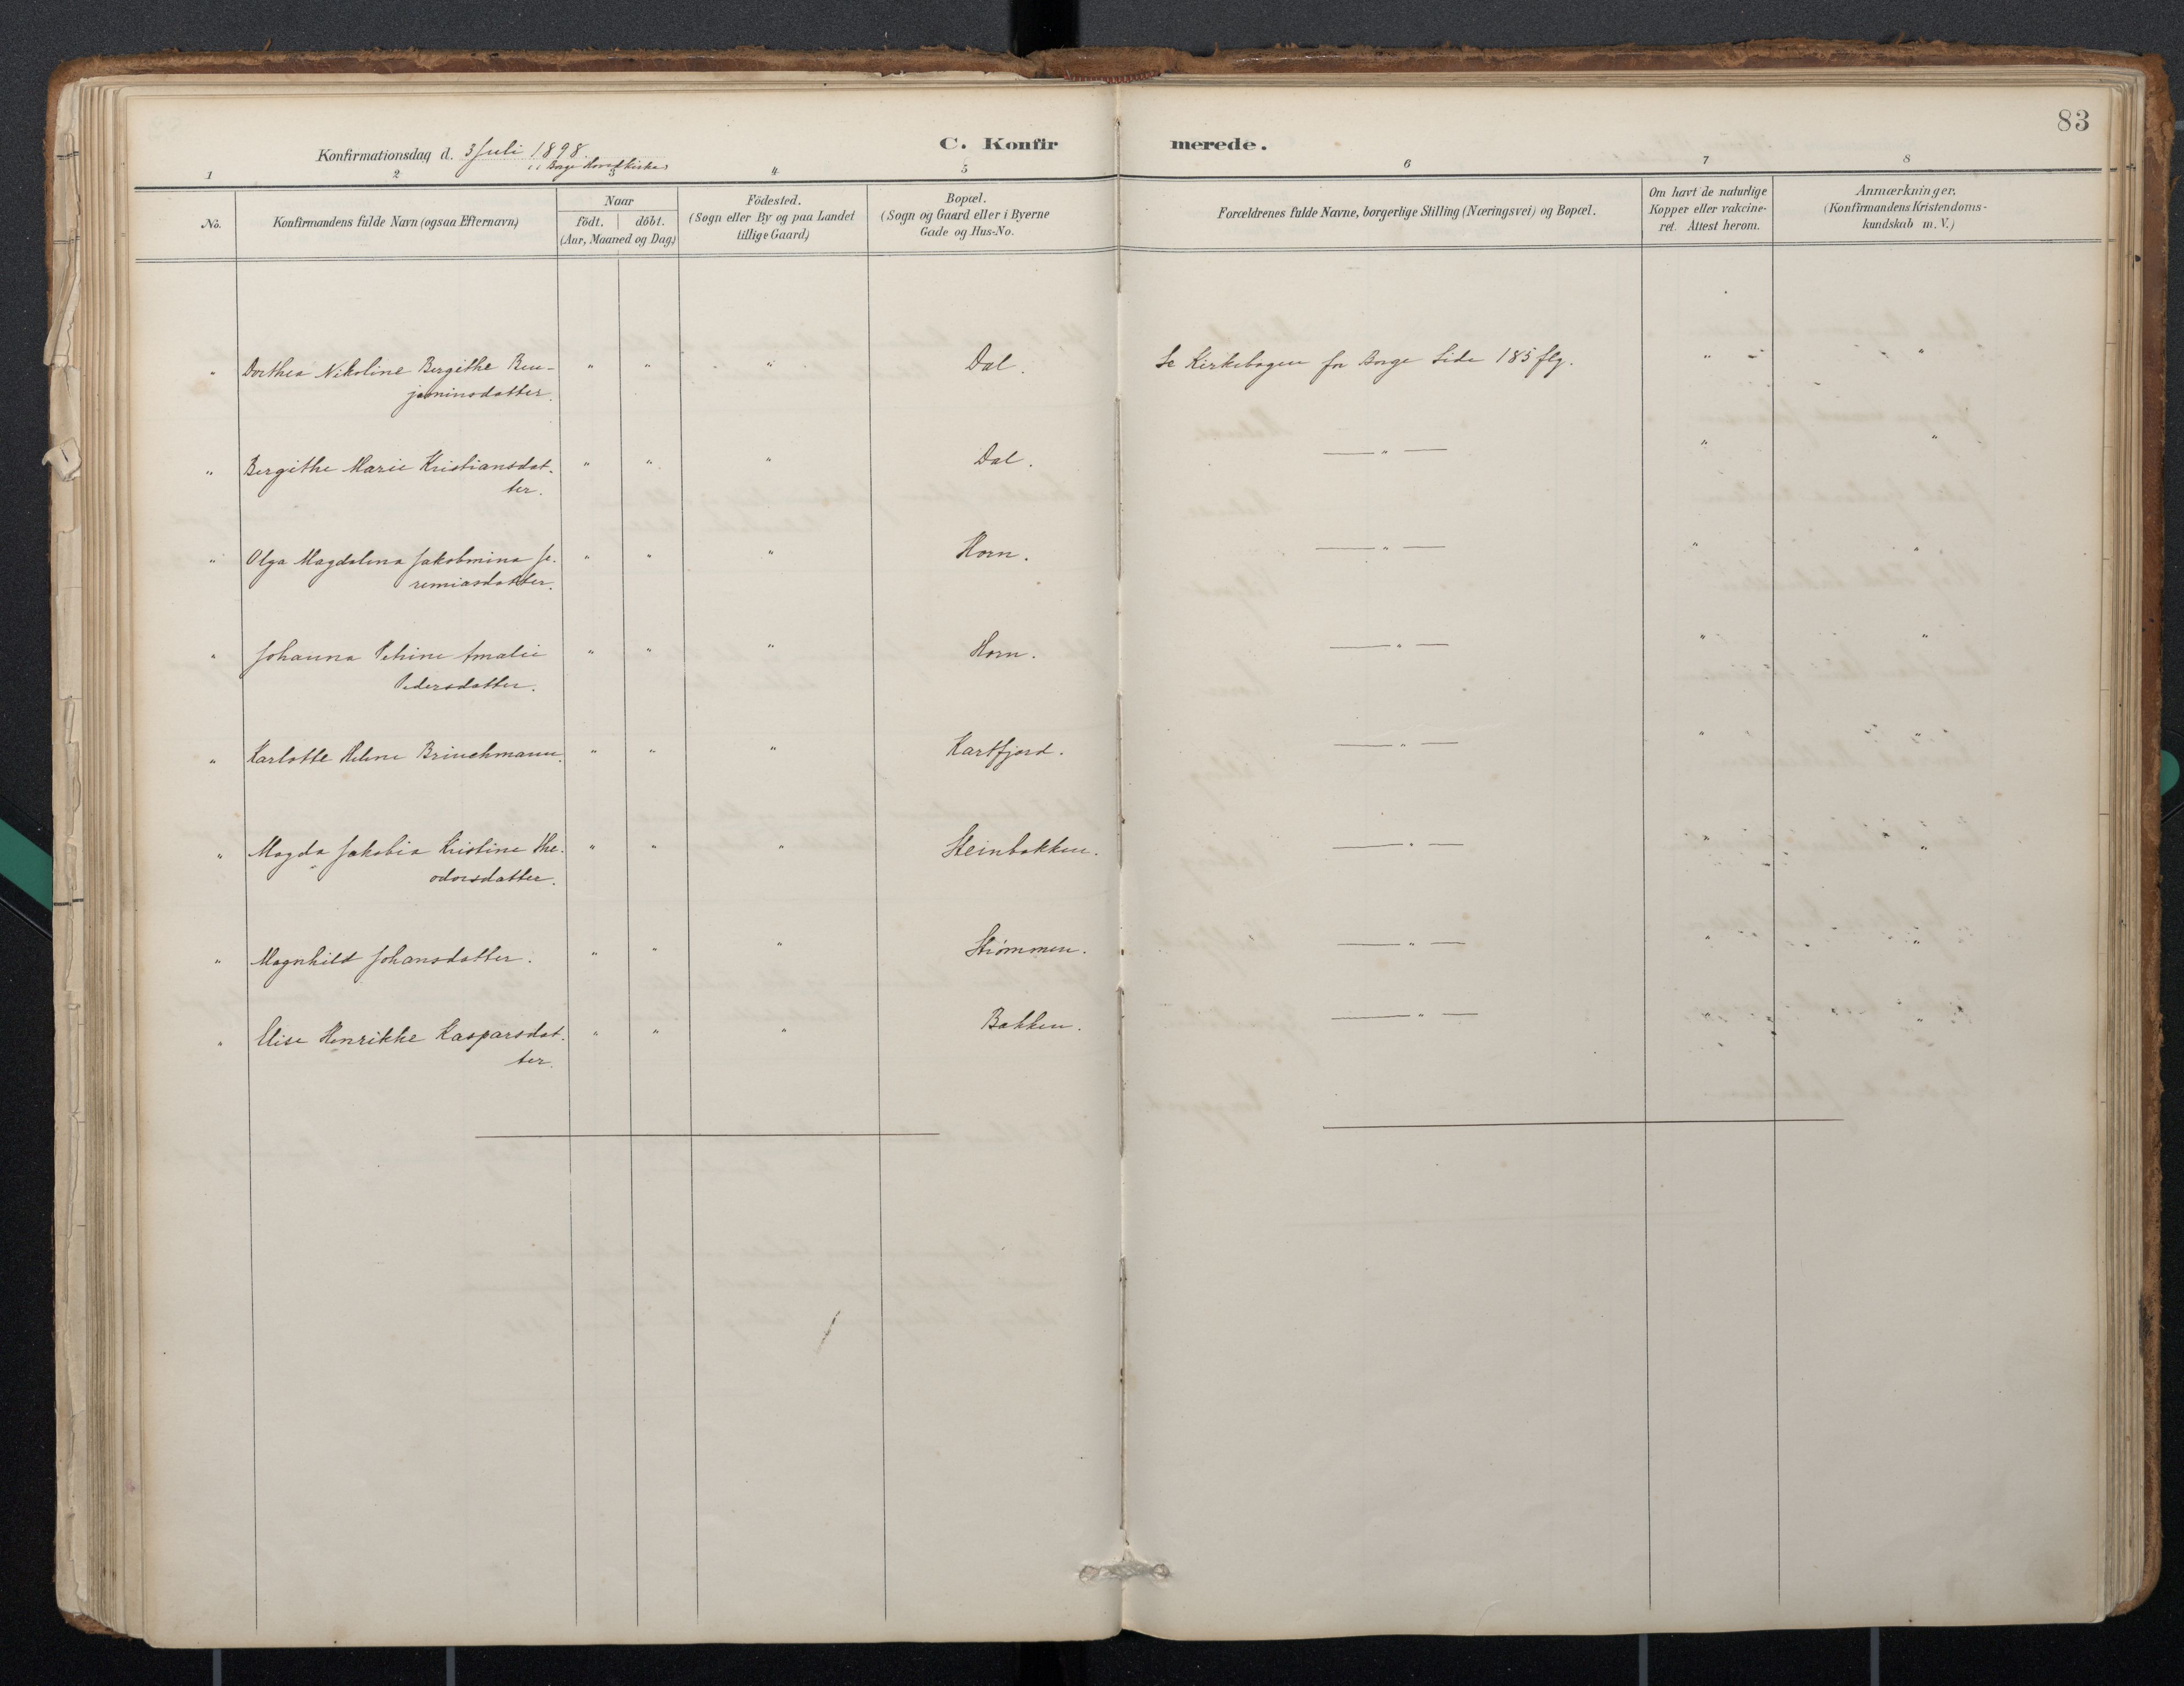 83
Konfirmationsdag d. 3 Juli 1898.
i Borge Hovedkirke
C. Konfirmerede.
1 2 3 4 5 6 7 8
No.
Konfirmandens fulde Navn (ogsaa Efternavn)
Naar
födt. | döbt.
(Aar, Maaned og Dag.)
Födested.
(Sogn eller By og paa Landet
tillige Gaard)
Bopæl.
(Sogn og Gaard eller i Byerne
Gade og Hus-No.
Forældrenes fulde Navne, borgerlige Stilling (Næringsvei) og Bopæl.
Om havt de naturlige
Kopper eller vakcine-
ret. Attest herom.
Anmærkninger.
(Konfirmandens Kristendoms-
kundskab m. V.)
" Dorthea Nikoline Bergithe Ben- " " " Dal. Se Kirkebogen for Borge Side 185 flg. " "
jaminsdatter.
" Bergithe Marie Kristiansdat- " " " Dal. — " — " "
ter.
" Olga Magdalena Jakobmina Je- " " " Horn. — " — " "
remiasdatter.
" Johanna Petrine Amalie " " " Horn. — " — " "
Pedersdatter.
" Karlotte Helene Brinchmann. " " " Kartfjord. — " — " "
" Magda Jakobia Kristine The- " " " Steinbakken. — " — " "
odorsdatter.
" Magnhild Johansdatter. " " " Strømmen. — " — " "
" Elise Henrikke Kasparsdat- " " " Bakken. — " — " "
ter.